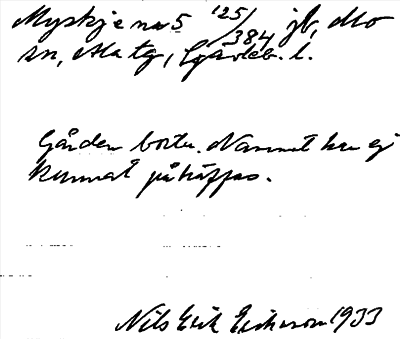 Myskje nr 5 125/384 jb, Mo
sn, Ma tg, Gävleb. l.
Gården borta. Namnet har ej
kunnat påträffas.
Nils Erik Eriksson 1933